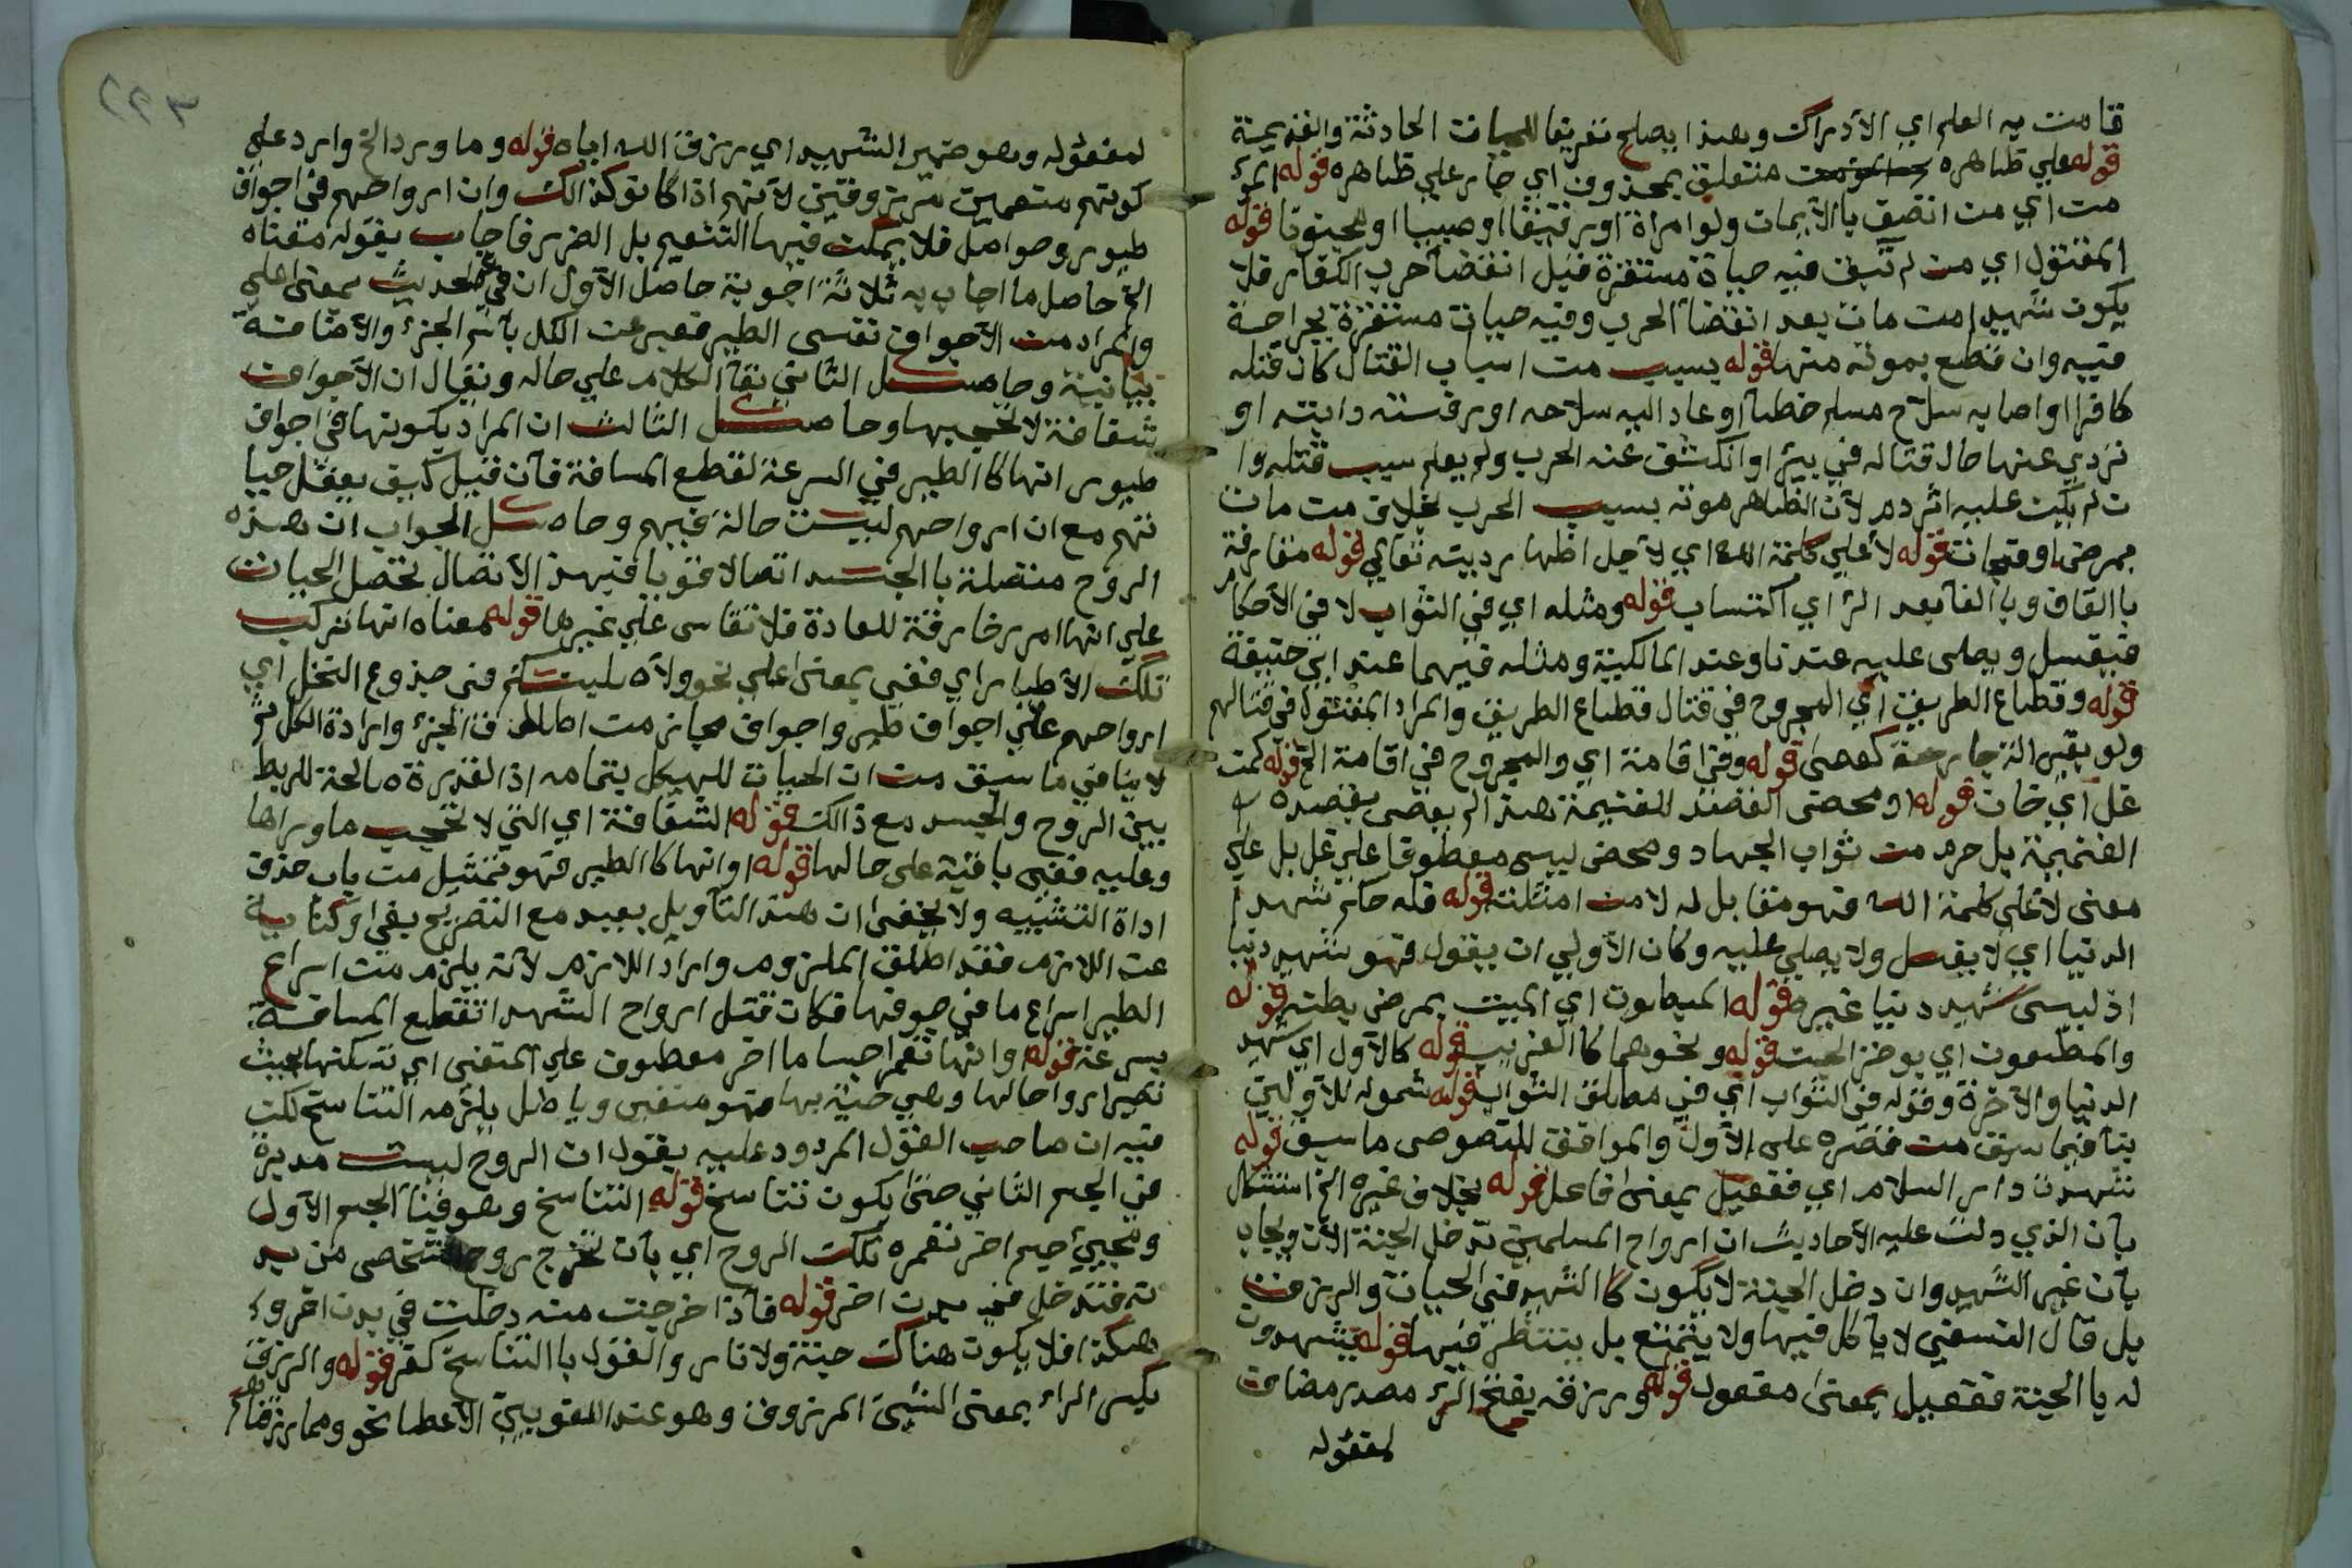 قامت به العلم اي الأدراك وبهذا يصلح تفريقا للحيات الحادثة والقديمة
قوله علي ظاهره متعلق بمحذوف اي جار علي ظاهره قوله
مت اي مت اتصف بالأيمان ولو امراة او رقيقا او صبيا او مجنونا قوله
المقتول اي مت لم تبق فيه حياة مستقرة قبل انقضآ حرب الكفار فلا
يكون شهيدا مت مات بعد انقضآ الحرب وفيه حيات مستقرة بجراحة
فيه وان قطع بموته منها قوله بسبب مت اسباب القتال كان قتله
كافرا او اصابه سلاح مسلم خطآ او عاد اليه سلاحه او رفسته دابته او
تردي عنها حال قتاله في بئر او انكشف عنه الحرب ولم يعلم سبب قتله وا
ت لم يكت عليه اثر دم لأن الظاهر موته بسبب الحرب بخلاف مت مات
بمرض او فجات قوله لأعلي كلمة الله اي لأجل اظهار ديته تعالي قوله مفارقة
باالقاف وباالفآ بعد الر اي اكتساب قوله ومثله اي في الثواب لا في الأحكام
فيغسل ويصلى عليه عندنا وعند المالكية ومثله فيهما عند ابي حنيفة
قوله وقطاع الطريق اي المجروح في قتال قطاع الطريق والمراد المقتول في قتالهم
ولو بغير الة جارحة كعصى قوله وفي اقامة اي والمجروح في اقامة الخ قوله كمت
غل اي خان قوله او محض القصد للغنيمة هذا لم يعصى بقصده
الغنيمة بل حرم مت ثواب الجهاد ومحض ليسى معطوفا علي غل بل علي
معنى لأعلي كلمة الله فهو مقابل له لا مت امثلته قوله فله حكم شهيد
الدنيا اي لا يغسل ولا يصلي عليه وكان الأولي ان يقول فهو شهيد دنيا
اذ ليسى شهيد دنيا غيره قوله المبطون اي الميت بمرض بطنه قوله
والمطعون اي بوخز الجن قوله ونحوهما كالغريب قوله كالأول اي شهيد
الدنيا والأخرة وقوله في الثواب اي في مطلق الثواب قوله شموله للأولين
ينافي ما سبق مت قصره على الأول والموافق للنصوص ما سبق قوله
تشهدت دار السلام اي ففعيل بمعنى فاعل قوله بخلاف غيره الخ استشكل
بآن الذي دلت عليه الأحاديث ان ارواح المسلمين تدخل الجنة الأن ويجاب
بآن غير الشهيد وان دخل الجنة لا يكون كاالشهيد في الحيات والرزق
بل قال النسفي لا يآكل فيها ولا يتمتع بل ينتظر فيها قوله يشهدون
له باالجنة ففعيل بمعنى مفعول قوله ورزقه بفتح الرآ مصدر مضاف
لمفعوله
٢٢٣
لمفعوله وهو ضمير الشهيد اي رزق الله اياه قوله وما ورد الخ وارد علي
كونهم متنعمين مرزوقين لأنهم اذا كانو كذالك وان ارواحهم في اجواف
طيور وحواصل فلا يمكن فيها التنعيم بل الضرر فاجاب بقوله معناه
الخ حاصل ما اجاب به ثلاثة اجوبة حاصل الأول ان في في الحديث بمعنى اعلي
والمراد مت الأجواف نفسى الطير فعبر عن الكل بآسم الجزء والأضافة
بيانية وحاصل الثاني بقآ الكلام علي حاله ونقال ان الأجواف
شفافة لا تحجبها وحاصل الثالث ان المراد بكونها في اجواف
طيور انها كاالطير في السرعة لقطع المسافة فآن قيل كيف يعقل حيا
تهم مع ان ارواحهم ليست حالة فيهم وحاصل الجواب ان هذه
الروح متصلة باالجسد اتصالا قويا فبهذ الأتصال تحصل الحيات
علي انها امر خارقة للعادة فلا تقاسى علي غيرها قوله معناه انها تركب
تلك الأطيار اي ففي بمعنى علي نحو ولأصلبنكم في جذوع النخل اي
ارواحهم علي اجواف طير واجواف مجاز مت اطلاق الجزء وارادة الكل ثم
لا ينافي ما سبق مت ان الحيات للهيكل بتمامه اذ القدرة صالحة للربط
بين الروح والجسد مع ذالك قوله الشفافة اي التي لا تحجب ما وراها
وعليه ففي باقية على حالها قوله او انها كاالطير فهو تمثيل مت باب حذف
اداة التشبيه ولا يخفى ان هذا التآويل بعيد مع التصريح بفي او كناية
عن اللازم فقد اطلق الملزوم واراد اللازم لأنه يلزم مت اسراع
الطير اسراع ما في جوفها فكان قتل ارواح الشهدا تقطع المسافة
بسرعة قوله وانها تعمر اجساما اخر معطوف علي المنفى اي تسكنها بحيث
تصير ارواحا لها وهي حية بها فهو منفي وباطل يلزمه التناسخ لكن
فيه ان صاحب القول المردود عليه يقول ان الروح ليست مديرة
في الجسم الثاني حتى يكون تناسخ قوله التناسخ وهو فنآ الجسم الأول
ومجيئ جسم اخر تعمره تلك الروح اي بآن تخرج روح شخص من بد
نه فتدخل في بدن اخر قوله فآذا خرجت منه دخلت في بدن اخر و
هكذا فلا يكون هناك جنة ولا نار والقول باالتناسخ كفر قوله والرزق
بكسر الراء بمعنى الشيئ المرزوق وهو عند اللغويين الأعطا نحو ومما رزقناهم